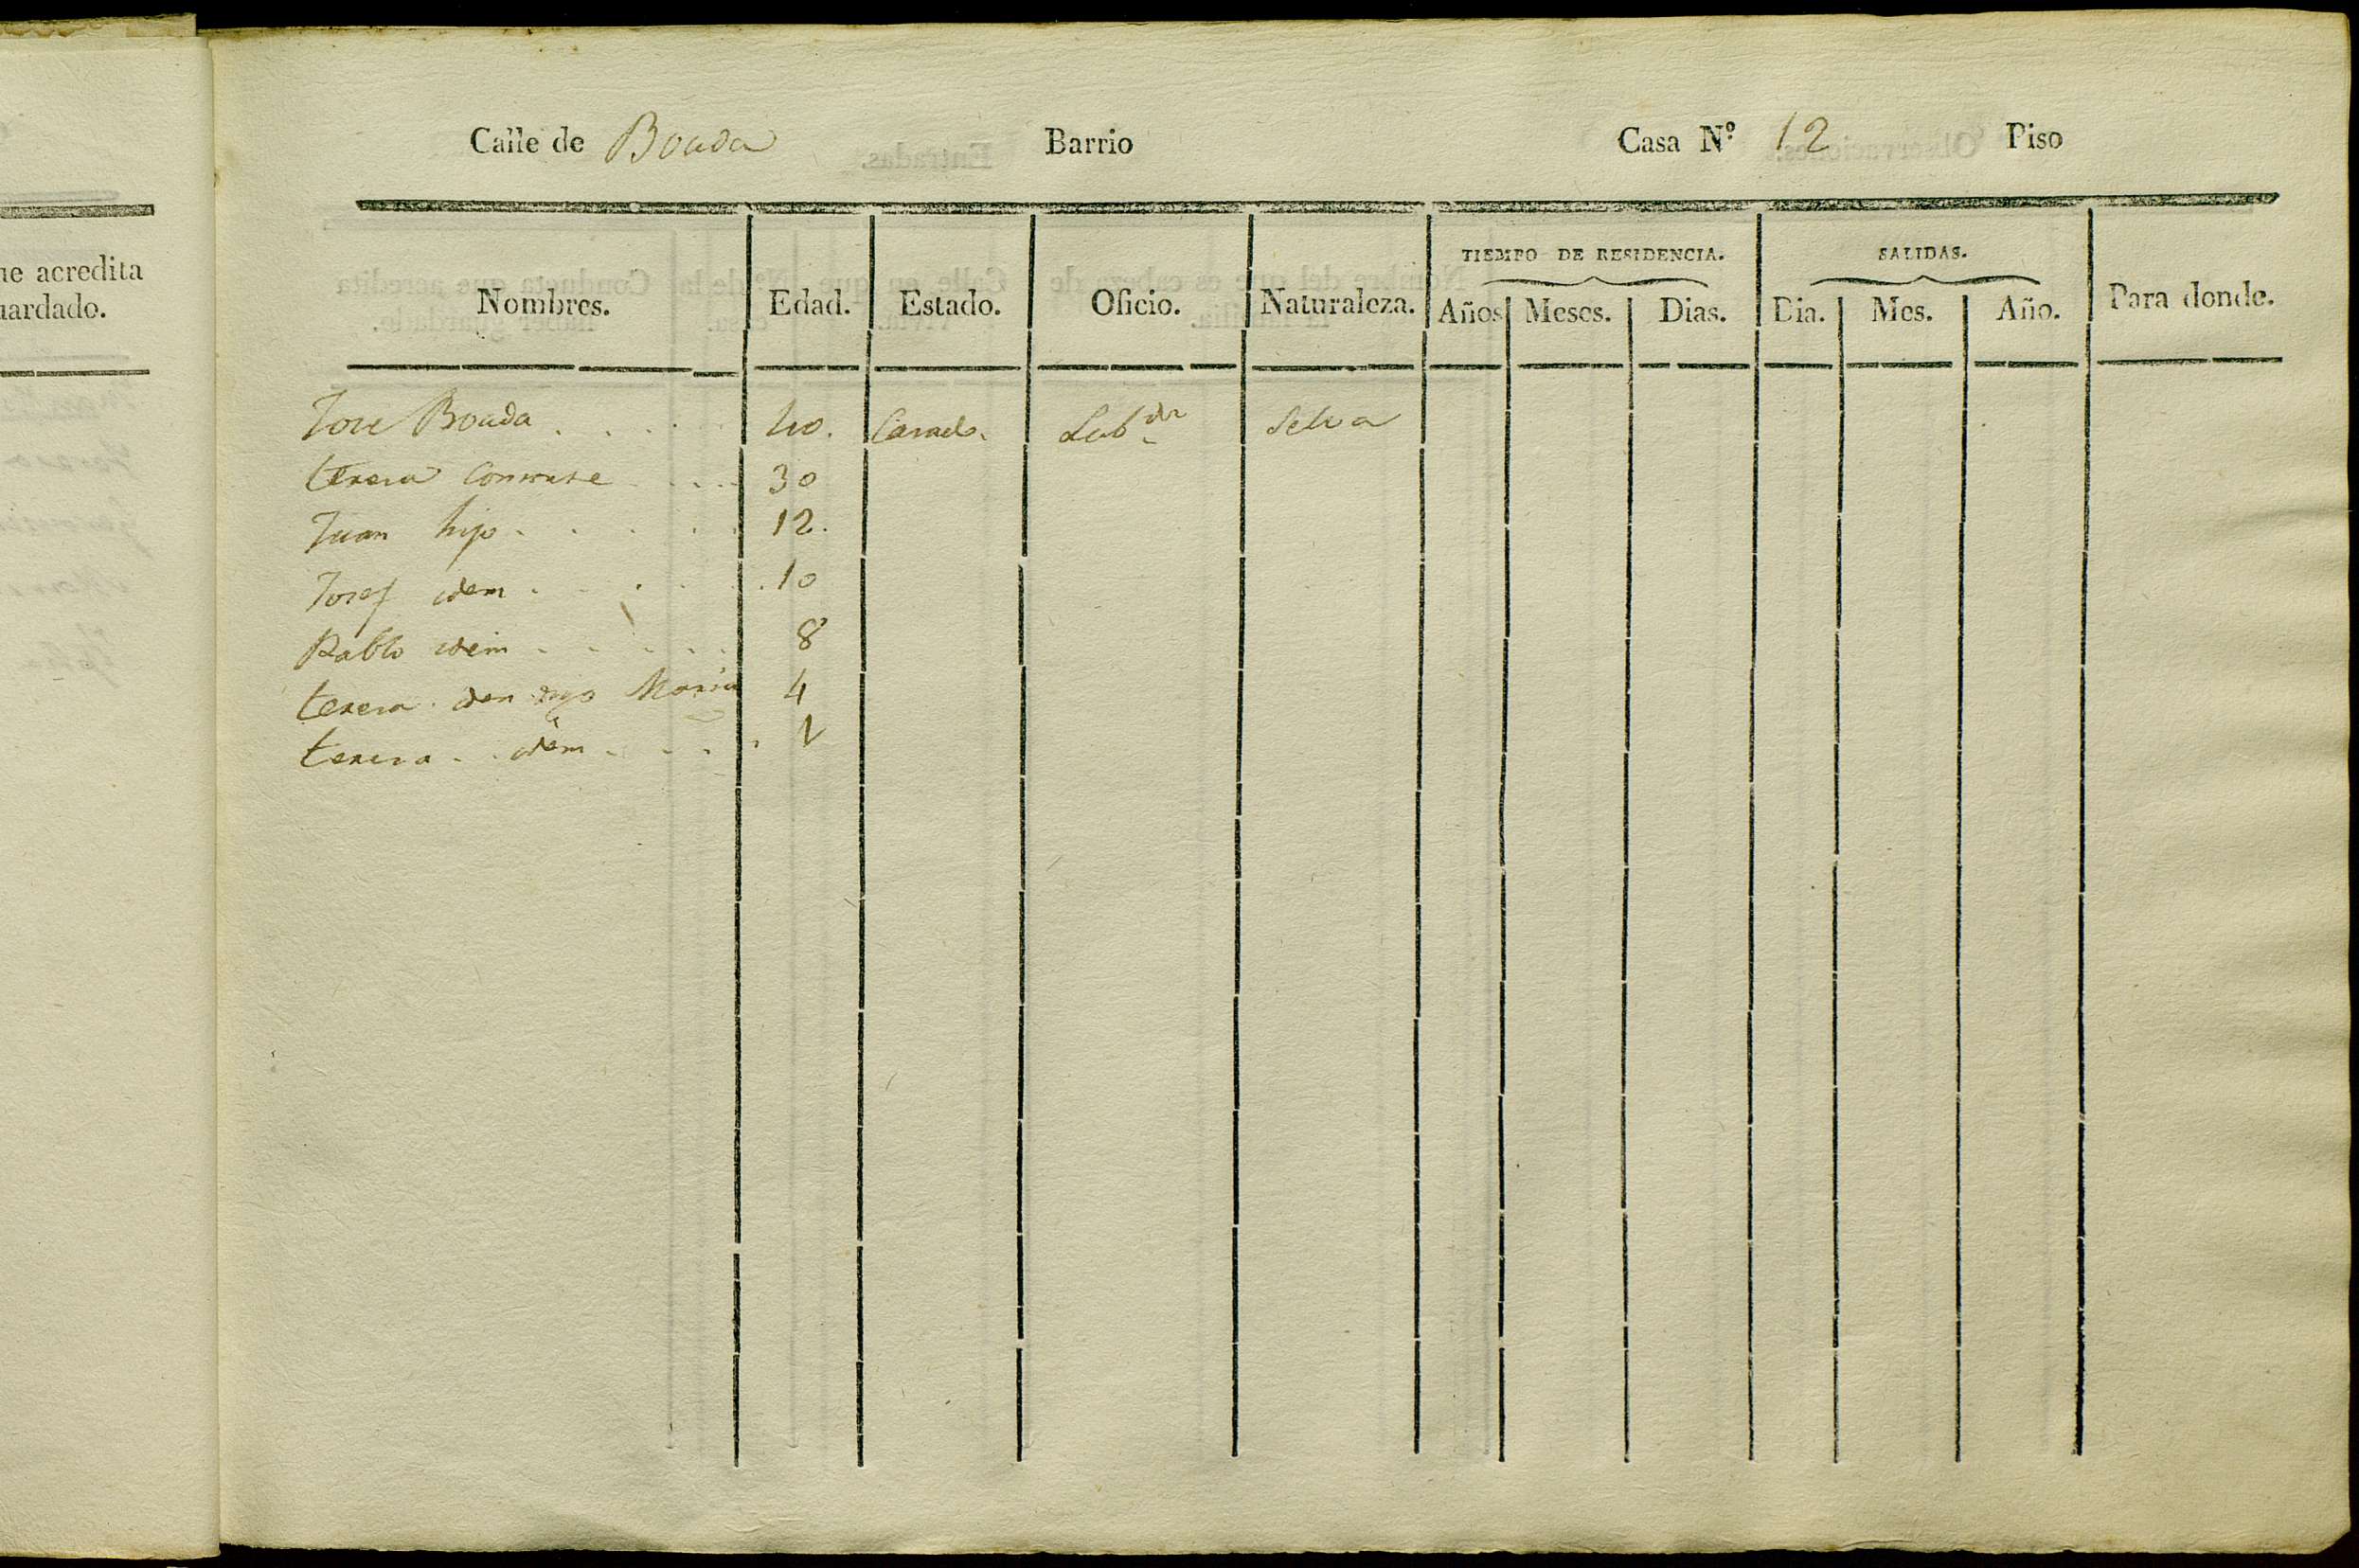 ue acredita
uardado.
Calle de Bouda Barrio Casa N.º 12 Piso
TIEMPO DE RESIDENCIA. SALIDAS.
Nombres. Edad. Estado. Oficio. Naturaleza. Años Meses. Dias. Dia. Mes. Año. Para donde.
Jose Bouda 40. Casado. Lab.dr Selva
teresa Consorte 30
Juan hijo 12.
Josef idem 10
Pablo idem 8
teresa Maria 4
teresa idem 1